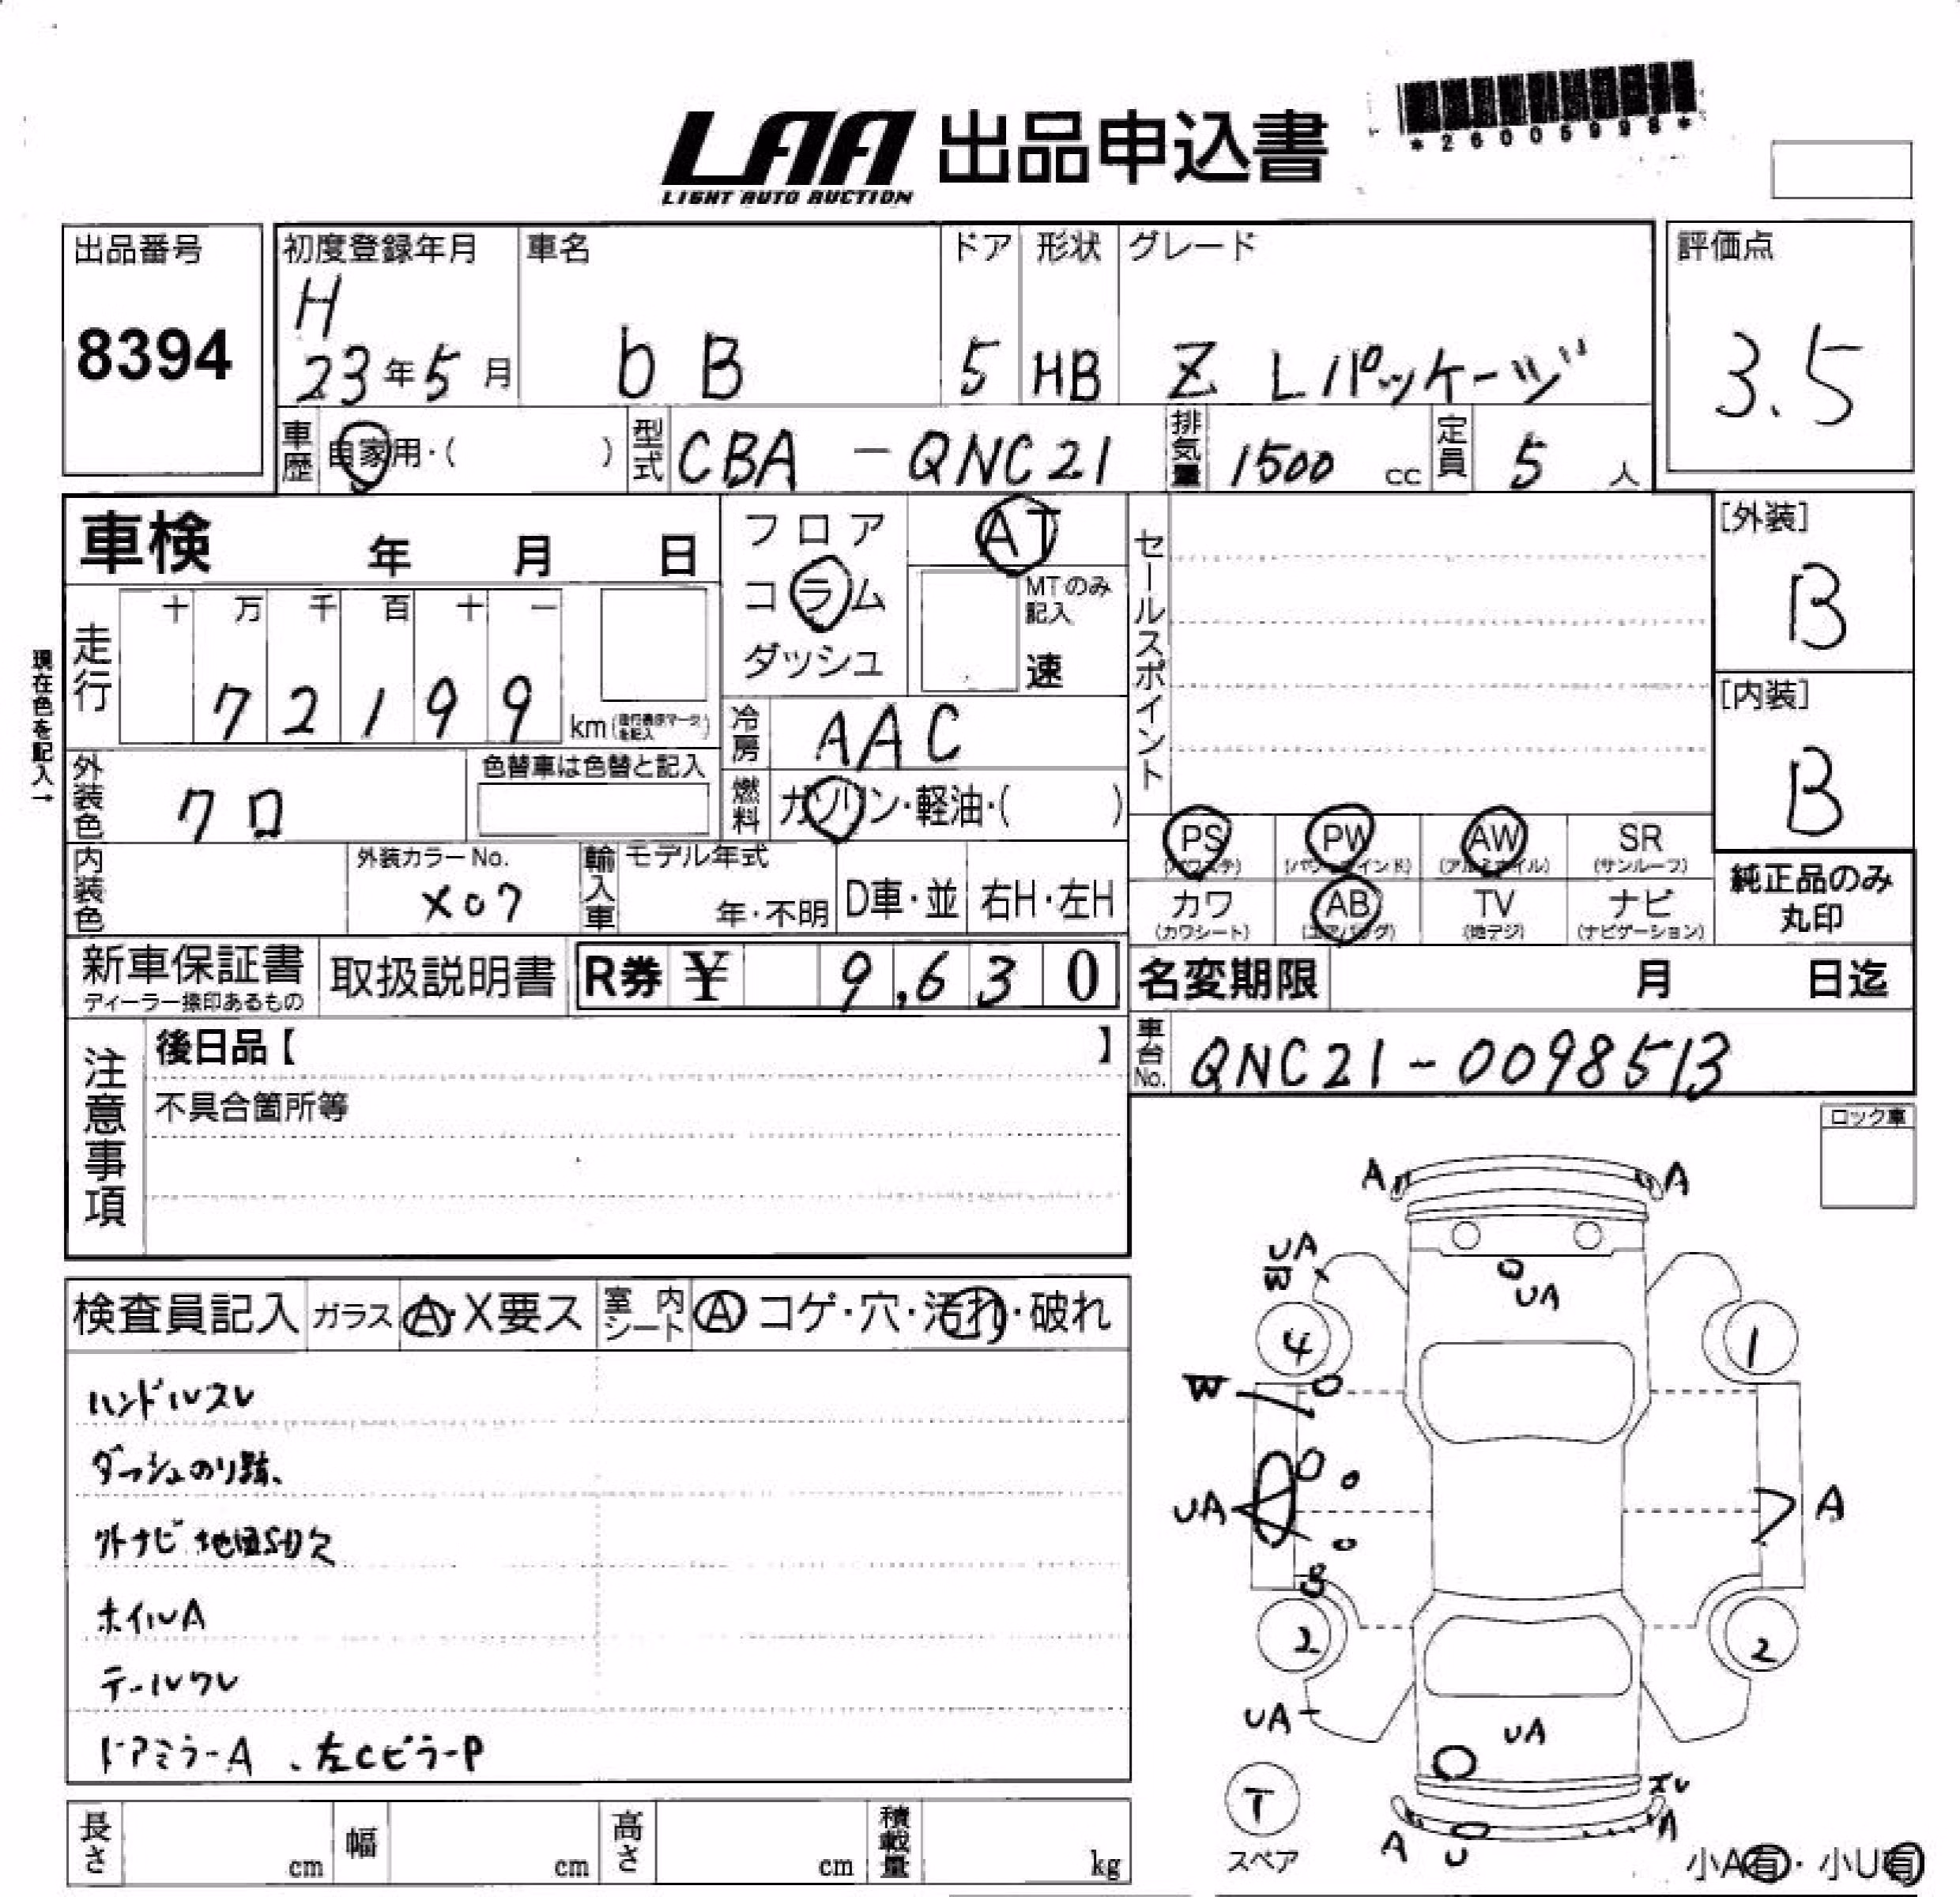 LAA 出品申込書
LIGHT AUTO AUCTION
*26005998*
出品番号 初度登録年月 車名 ドア 形状 グレード 評価点
8394 H 23年5月 bB 5 HB Z Lパッケージ 3.5
車歴 自家用・( ) 型式 CBA-QNC21 排気量 1500 cc 定員 5 人
車検 年 月 日
フロア AT
コラム MTのみ記入
ダッシュ 速
セールスポイント
[外装] B
現在色を記入→
走行 十 万 千 百 十 一
7 2 1 9 9 km
冷房 AAC
[内装] B
外装色 クロ 色替車は色替と記入
燃料 ガソリン・軽油・( )
PS PW AW SR
(パワステ) (パワーウインド) (アルミホイル) (サンルーフ)
内装色 外装カラーNo. X07 輸入車 モデル年式 年・不明 D車・並 右H・左H
カワ AB TV ナビ
(カワシート) (エアバッグ) (地デジ) (ナビゲーション)
純正品のみ
丸印
新車保証書 取扱説明書 R券 ¥ 9,630
ディーラー捺印あるもの
名変期限 月 日迄
車台No. QNC21-0098513
注意事項
後日品【 】
不具合箇所等
ロック車
A A
UA
W
UA
4 1
W
UA A
2 2
UA UA
T
スペア
ズレ
A U A
小A有・小U有
検査員記入 ガラス A・X要ス 室内シート A コゲ・穴・汚れ・破れ
ハンドルスレ
ダッシュのり跡、
外ナビ 地図SD欠
ホイルA
テールワレ
ドアミラーA、左CピラーP
長さ cm 幅 cm 高さ cm 積載量 kg